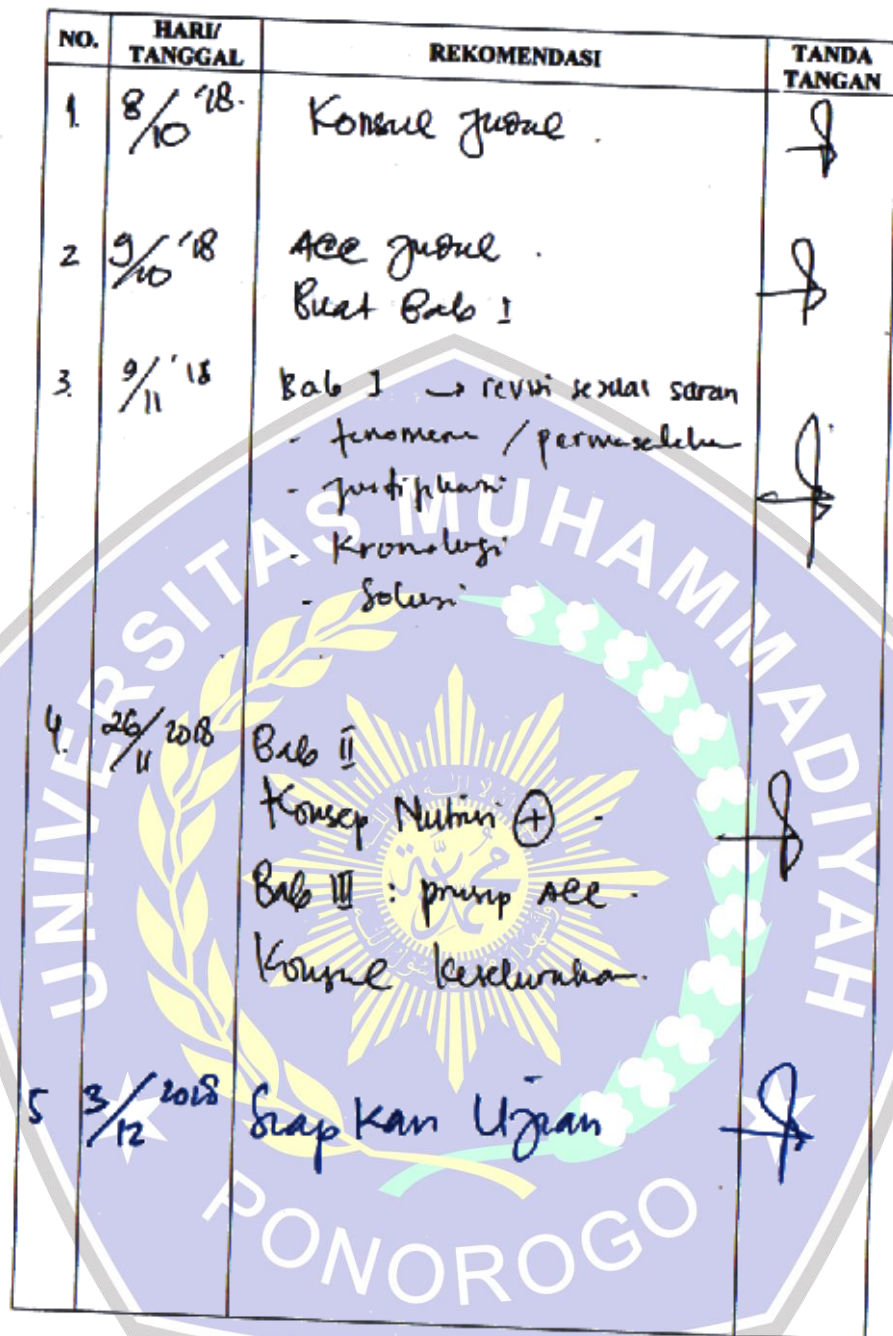 NO. HARI/ TANGGAL REKOMENDASI TANDA TANGAN
1. 8/10 '18. Konsul Judul .
2 9/10 '18 Acc Judul .
Buat Bab I
3. 9/11 '18 Bab I → revisi sesuai saran
- fenomena / permasalahan
- justifikasi
- Kronologi
- Solusi
4. 26/11 2018 Bab II
Konsep Nutrisi (+) -
Bab III : prinsip Acc .
Konsul Keseluruhan.
5 3/12 2018 Siapkan Ujian
UNIVERSITAS MUHAMMADIYAH
PONOROGO